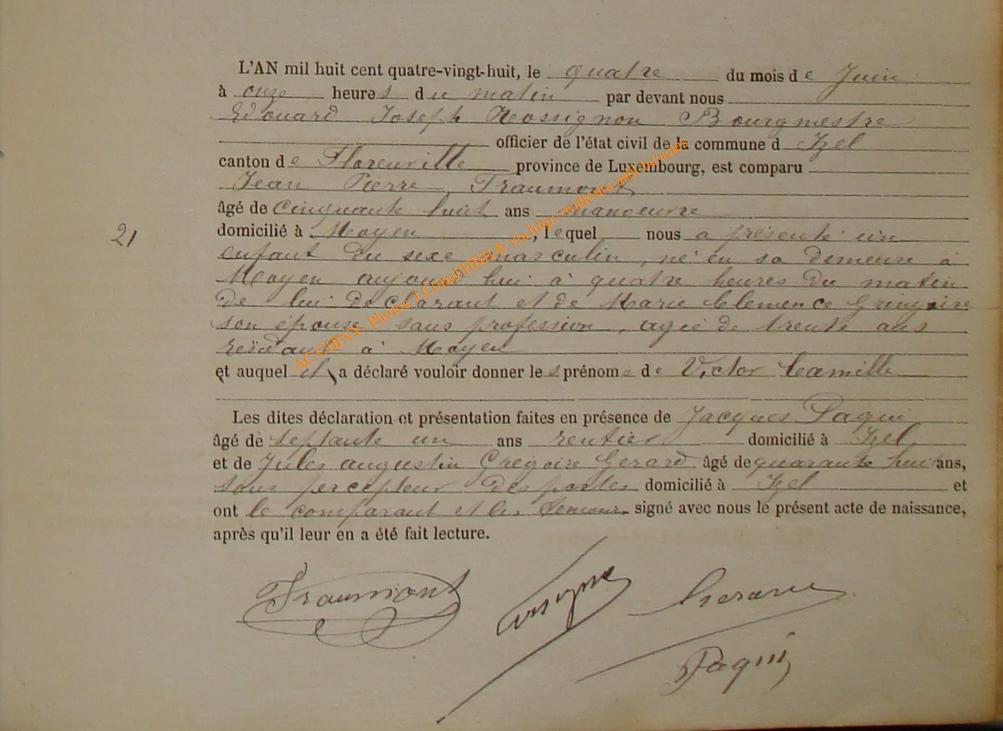 L'AN mil huit cent quatre-vingt-huit, le quatre du mois de Juin
à onze heures du matin par devant nous
Edouard Joseph Rossignon Bourgmestre
officier de l'état civil de la commune d Izel
canton de Florenville province de Luxembourg, est comparu
Jean Pierre Fraumont
âgé de cinquante huit ans manoeuvre
21 domicilié à Moyen, lequel nous a présenté un
enfant du sexe masculin, né en sa demeure à
Moyen aujourd'hui à quatre heures du matin
de lui déclarant et de Marie Clemence Gringoire
son épouse sans profession, agée de trente ans
résidant à Moyen
et auquel il a déclaré vouloir donner les prénoms de Victor Camille
Les dites déclaration et présentation faites en présence de Jacques Paqui
âgé de septante un ans rentier domicilié à Izel
et de Jules augustin Grégoire Gerard âgé de quarante huit ans,
sous percepteur des postes domicilié à Izel et
ont le comparant et les témoins signé avec nous le présent acte de naissance,
après qu'il leur en a été fait lecture.
Fraumont Gerard
Paqui